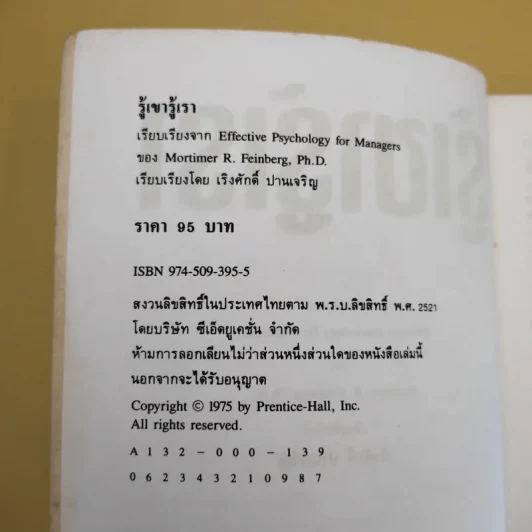 รู้เขารู้เรา
เรียบเรียงจาก Effective Psychology for Managers
ของ Mortimer R. Feinberg, Ph.D.
เรียบเรียงโดย เริงศักดิ์ ปานเจริญ
ราคา 95 บาท
ISBN 974-509-395-5
สงวนลิขสิทธิ์ในประเทศไทยตาม พ.ร.บ.ลิขสิทธิ์ พ.ศ. 2521
โดยบริษัท ซีเอ็ดยูเคชั่น จำกัด
ห้ามการลอกเลียนไม่ว่าส่วนหนึ่งส่วนใดของหนังสือเล่มนี้
นอกจากจะได้รับอนุญาต
Copyright © 1975 by Prentice-Hall, Inc.
All rights reserved.
A 1 3 2 – 0 0 0 – 1 3 9
0 6 2 3 4 3 2 1 0 9 8 7